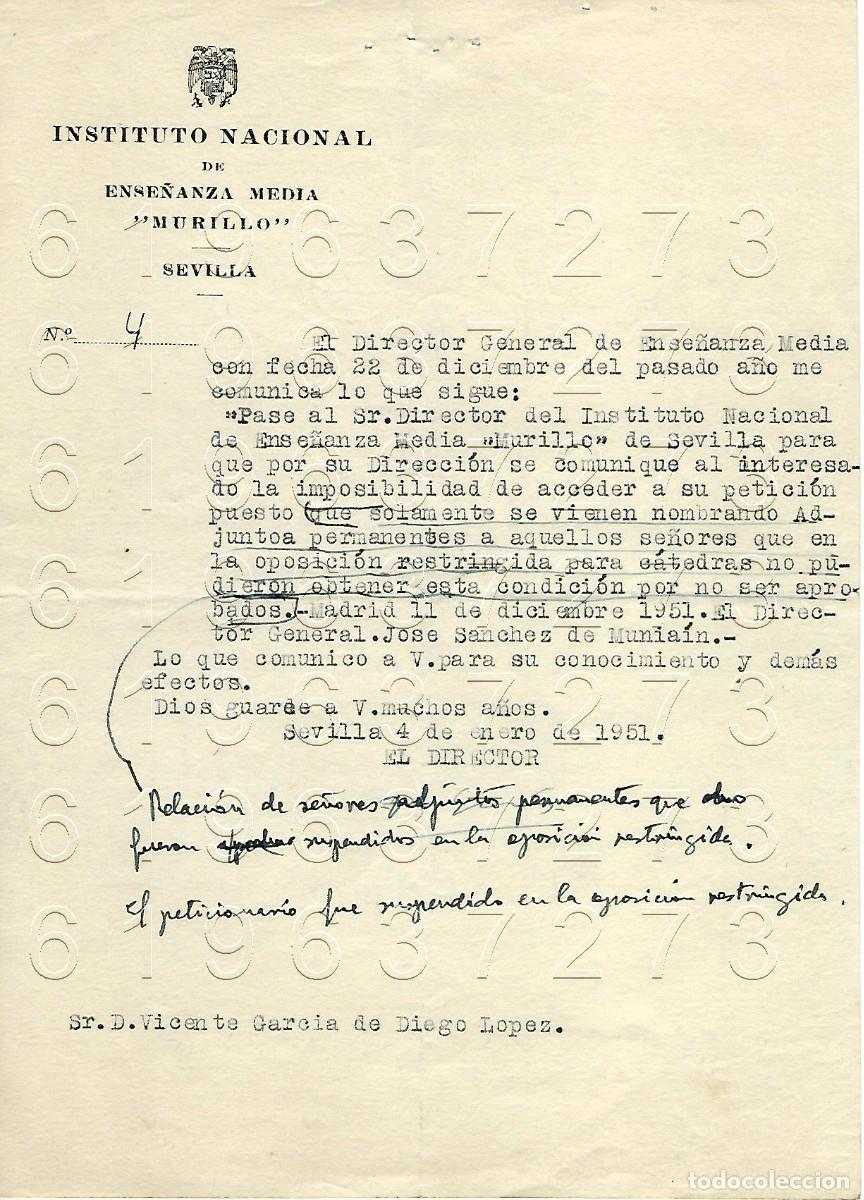 INSTITUTO NACIONAL
DE
ENSEÑANZA MEDIA
"MURILLO"
SEVILLA
N.º 4
El Director General de Enseñanza Media
con fecha 22 de diciembre del pasado año me
comunica lo que sigue:
"Pase al Sr.Director del Instituto Nacional
de Enseñanza Media "Murillo" de Sevilla para
que por su Dirección se comunique al interesa-
do la imposibilidad de acceder a su petición
puesto que solamente se vienen nombrando Ad-
juntoa permanentes a aquellos señores que en
la oposición restringida para cátedras no pu-
dieron obtener esta condición por no ser apro-
bados.-Madrid 11 de diciembre 1951.El Direc-
tor General.Jose Sanchez de Muniaín.-
Lo que comunico a V.para su conocimiento y demás
efectos.
Dios guarde a V.muchos años.
Sevilla 4 de enero de 1951.
EL DIRECTOR
Relación de señores adjuntos permanentes que
fueron suspendidos en la oposición restringida.
El peticionario fue suspendido en la oposición restringida.
Sr.D.Vicente Garcia de Diego Lopez.
619637273
619637273
619637273
619637273
619637273
619637273
619637273
todocoleccion